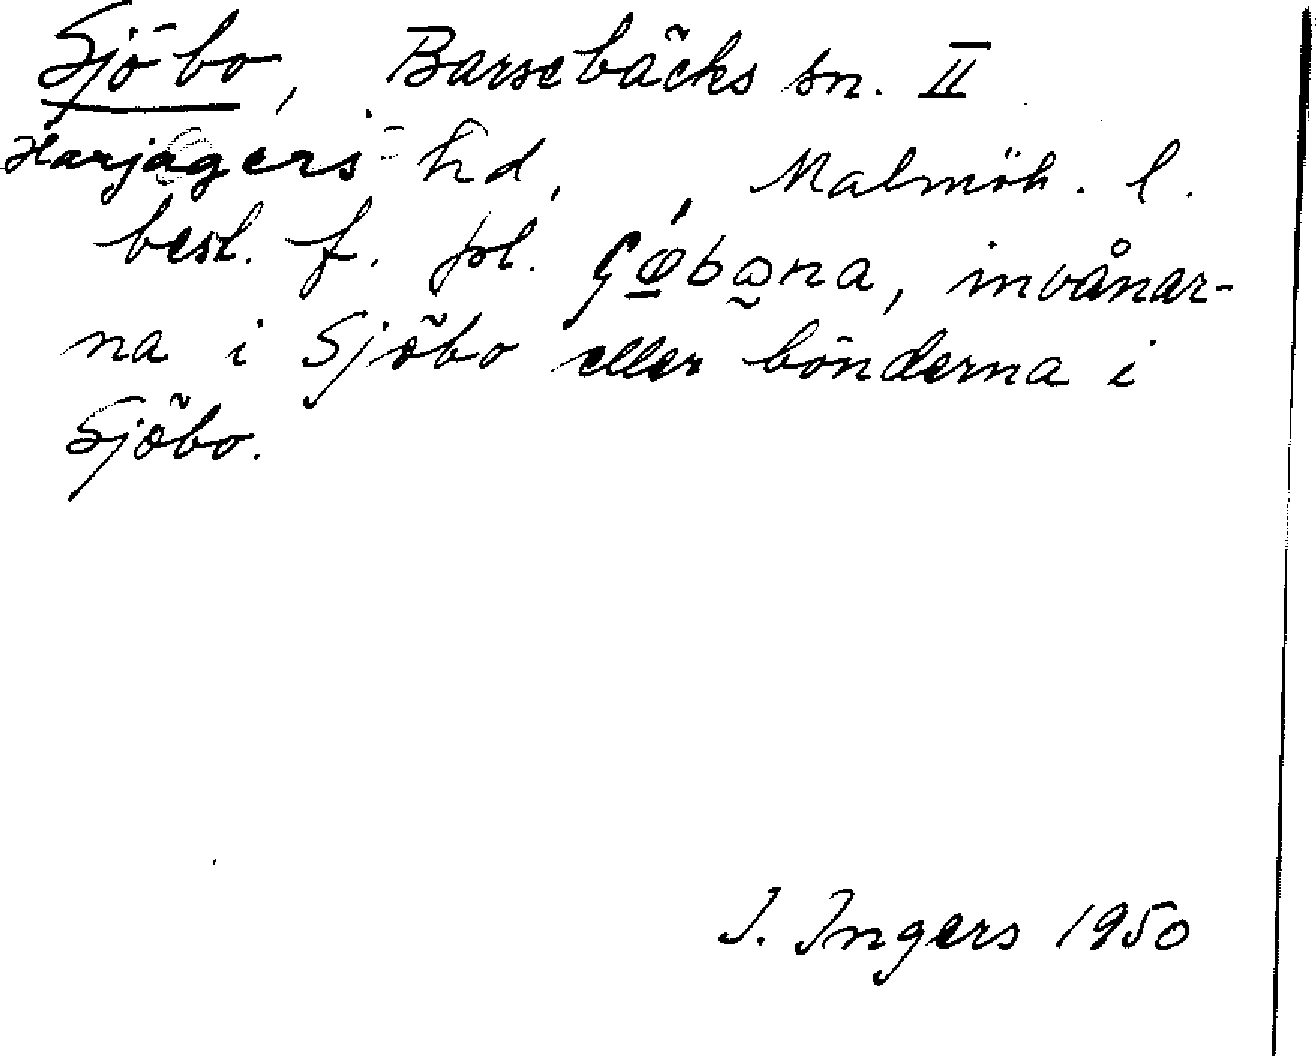 Sjöbo, Barsebäcks sn. II
Harjagers hd, Malmöh. l.
best. f. pl. ʂǿ̱bω̰na, invånar-
na i Sjöbo eller bönderna i
Sjöbo.
I. Ingers 1950